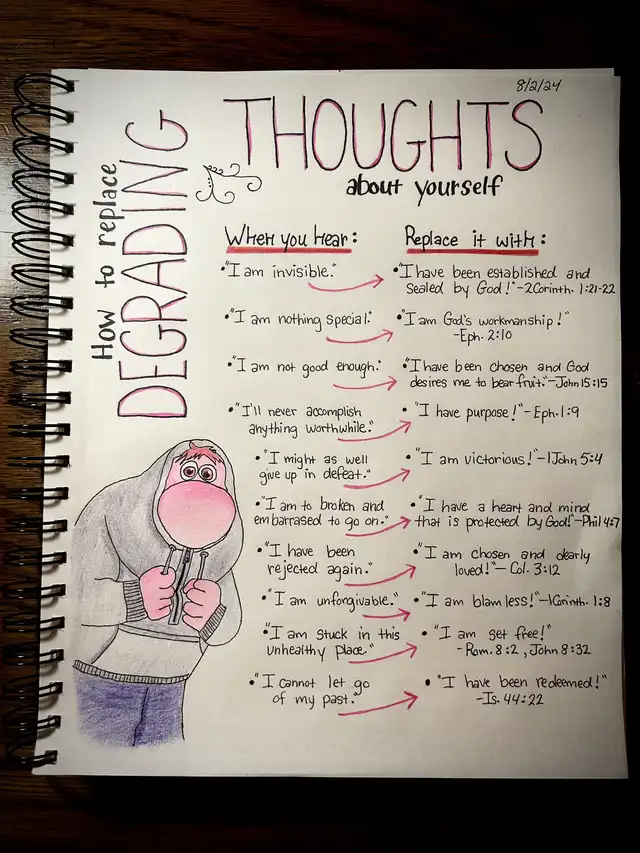 8/2/24
How to replace
DEGRADING
THOUGHTS
about yourself
When you hear:
Replace it with:
•"I am invisible."
•"I have been established and
sealed by God!"-2Corinth. 1:21-22
•"I am nothing special."
•"I am God's workmanship!"
-Eph. 2:10
•"I am not good enough."
•"I have been chosen and God
desires me to bear fruit."-John 15:15
•"I'll never accomplish
anything worthwhile."
• "I have purpose!"-Eph. 1:9
•"I might as well
give up in defeat."
•"I am victorious!"-1John 5:4
•"I am to broken and
embarrased to go on."
•"I have a heart and mind
that is protected by God!"-Phil 4:7
•"I have been
rejected again."
•"I am chosen and dearly
loved!"- Col. 3:12
•"I am unforgivable."
•"I am blamless!"-1Corinth. 1:8
•"I am stuck in this
unhealthy place."
•"I am set free!"
-Rom. 8:2, John 8:32
•"I cannot let go
of my past."
• "I have been redeemed!"
-Is. 44:22